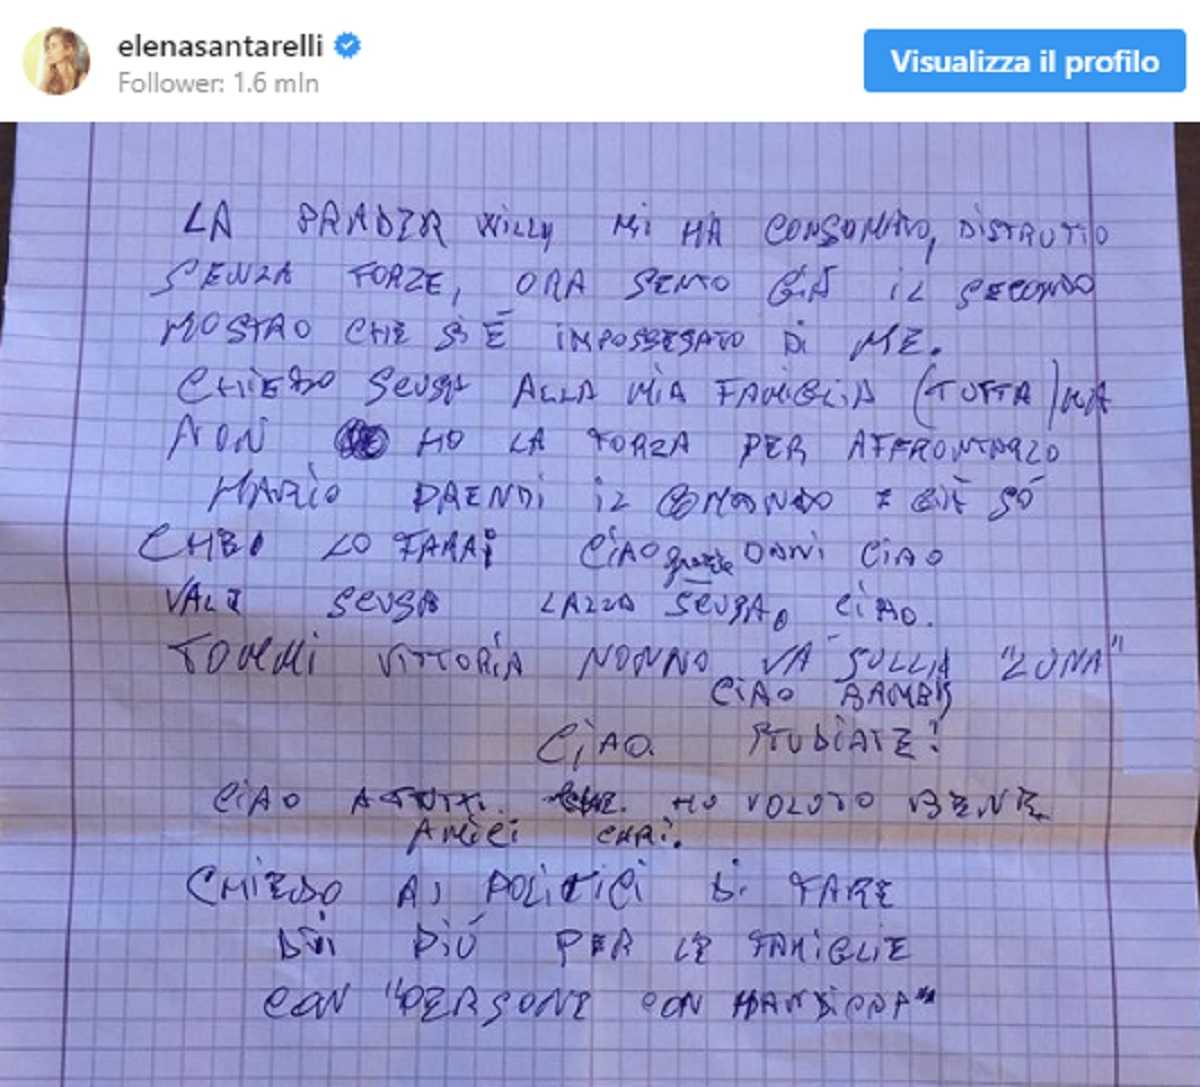 elenasantarelli
Follower: 1.6 mln
Visualizza il profilo
LA PRADER WILLY MI HA CONSUMATO, DISTRUTTO
SENZA FORZE, ORA SENTO GIÀ IL SECONDO
MOSTRO CHE SI È IMPOSSESATO DI ME.
CHIEDO SCUSA ALLA MIA FAMIGLIA (TUTTA) MA
NON HO LA FORZA PER AFFRONTARLO
MARIO PRENDI IL COMANDO E GIÀ SÒ
CHE LO FARAI CIAO grazie CIAO
VALE SCUSA SCUSA, CIAO.
TOMMI VITTORIA NONNO VÀ SULLA "LUNA"
CIAO BAMBI
CIAO. STUDIATE!
CIAO A TUTTI. HO VOLUTO BENE
AMICI CARI.
CHIEDO AI POLITICI DI FARE
DI PIÙ PER LE FAMIGLIE
CON "PERSONE CON HANDICAP"